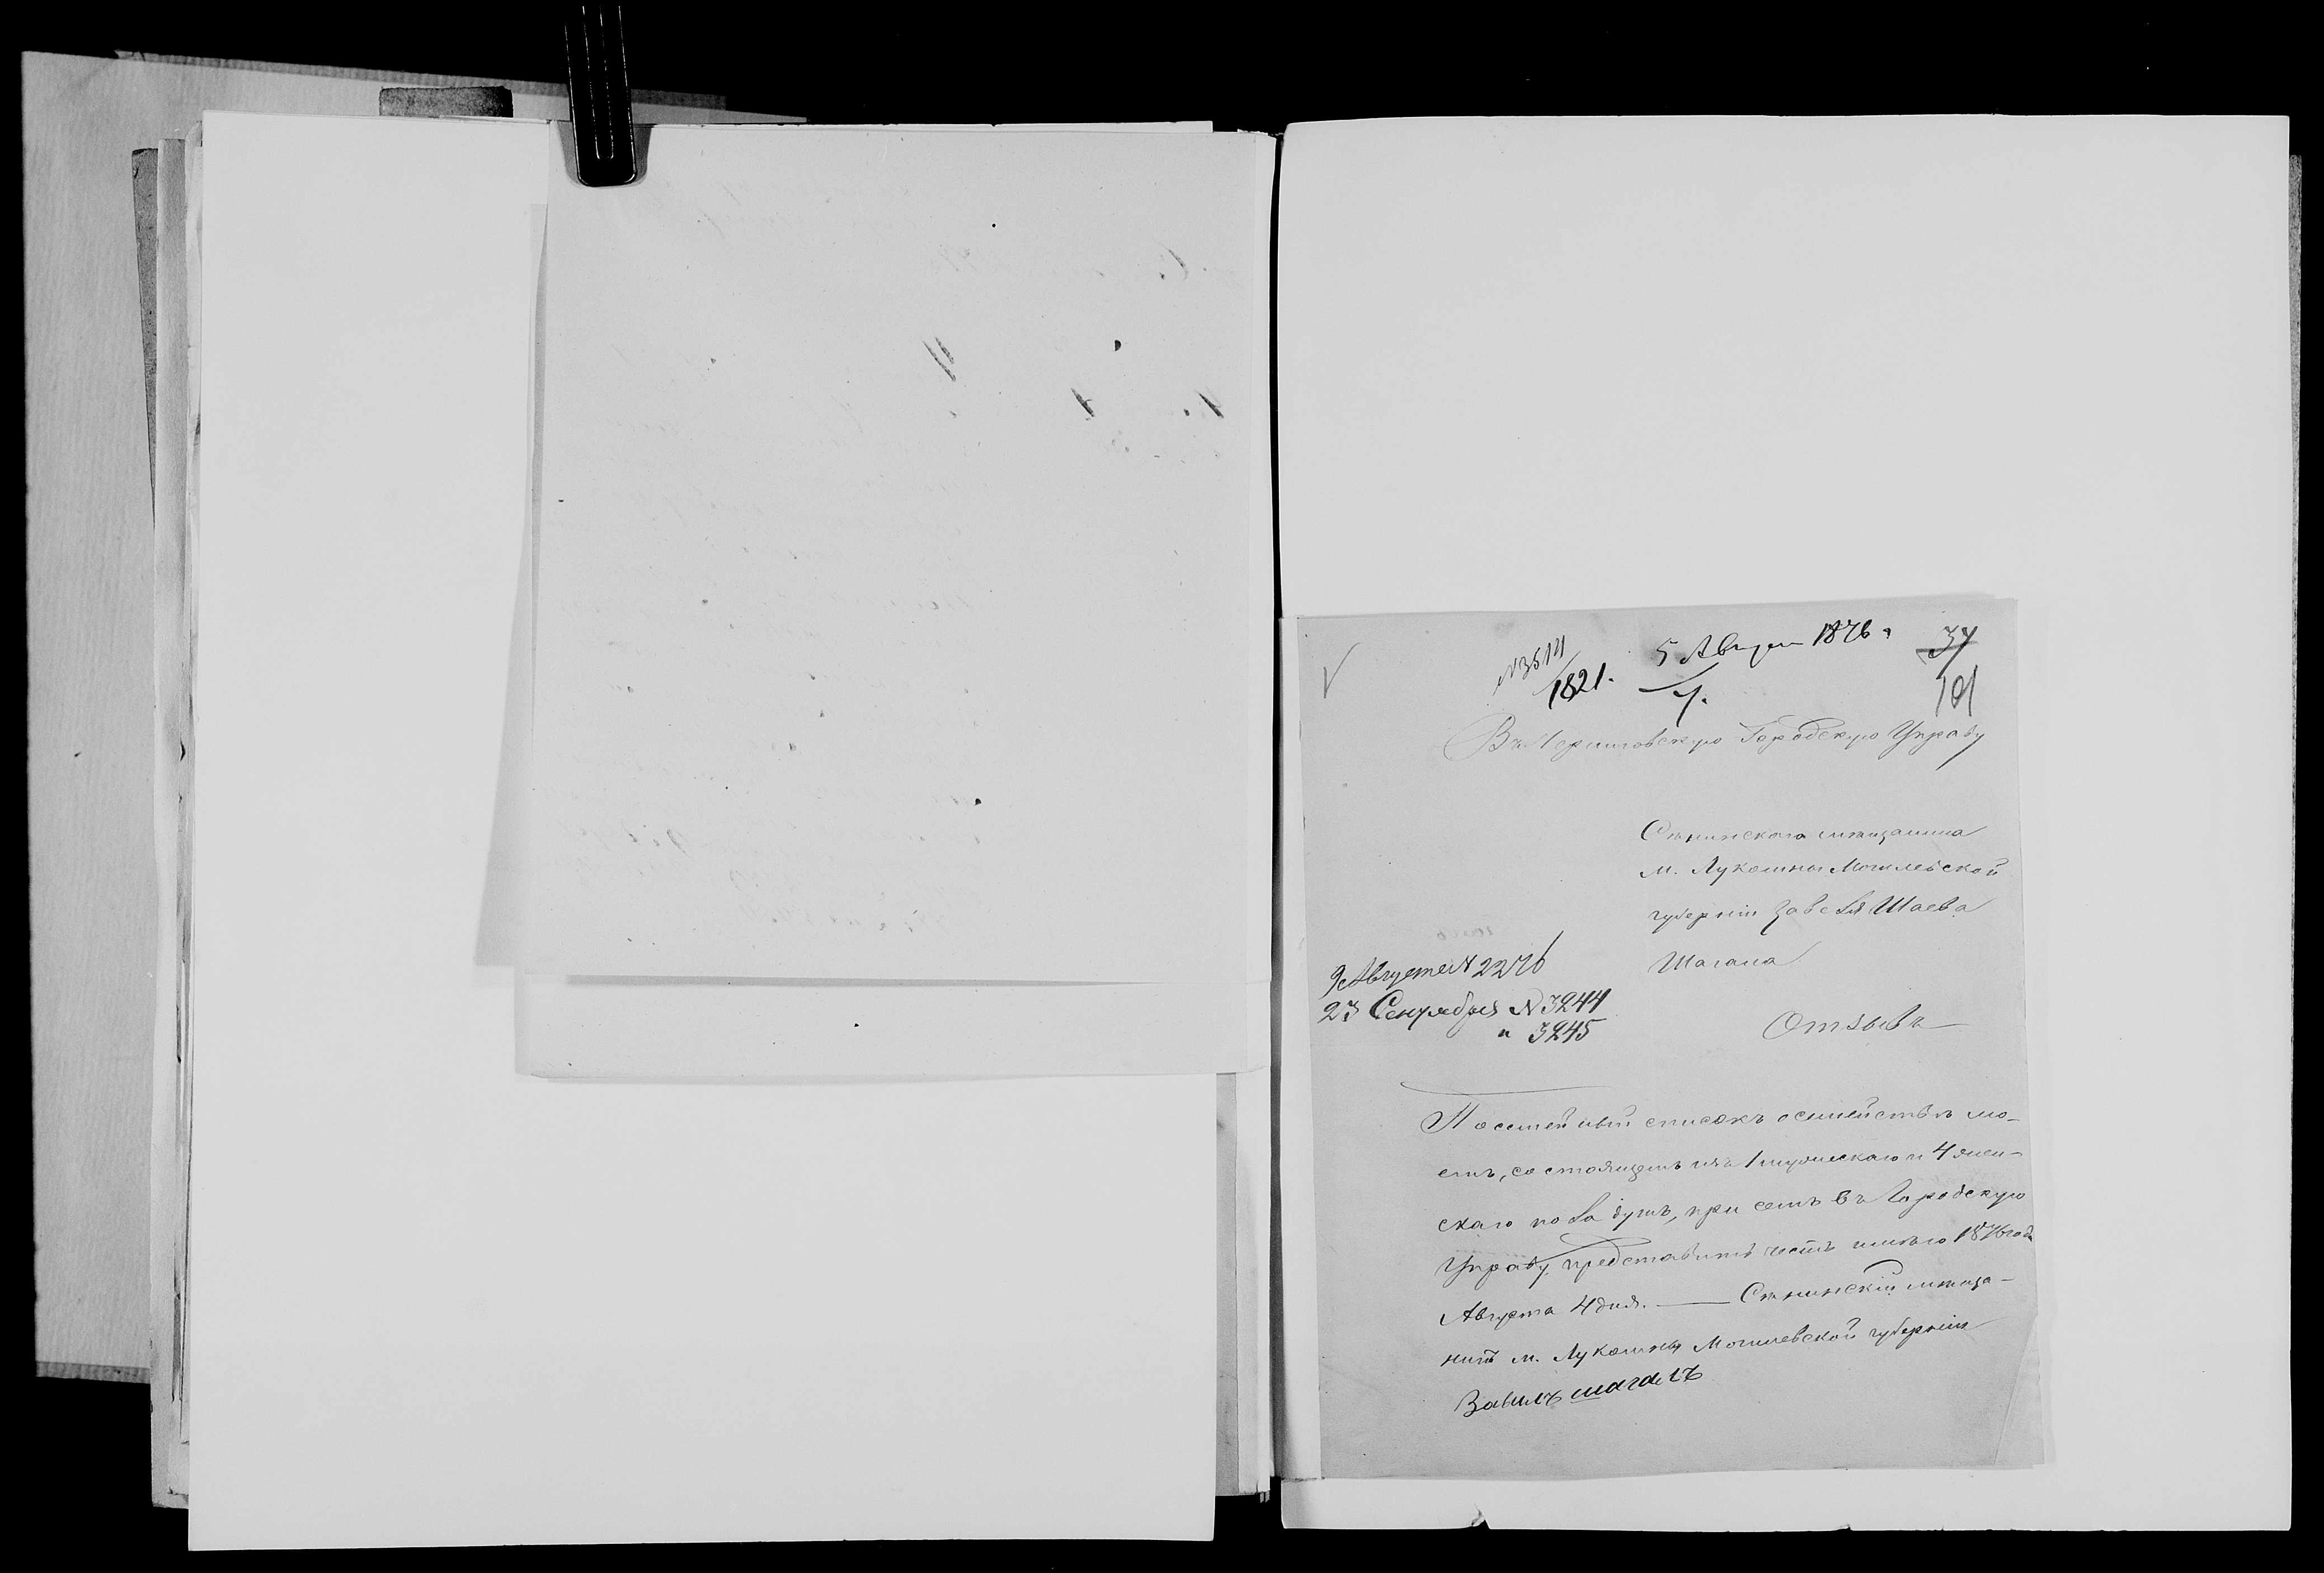 N 3514
1821.
5 Август 1876 г
37
101
Въ Черниговскую Городскую Управу
Сѣннинскаго мѣщанина
м. Лукомны Могилевской
губерніи Завеля Шаева
Шагала
Отзывъ
9 Августа N 2276
23 Сентября N 3244
и 3245
Посемейный списокъ о семействѣ мо-
емъ, состоящемъ изъ 1 мужескаго и 4 жен-
скаго пола душъ, при семъ въ Городскую
Управу представить честь имѣю 1876 года
Августа 4 дня. — Сѣннинскій мѣща-
нинъ м. Лукомны Могилевской губерніи
Завилъ шагалъ